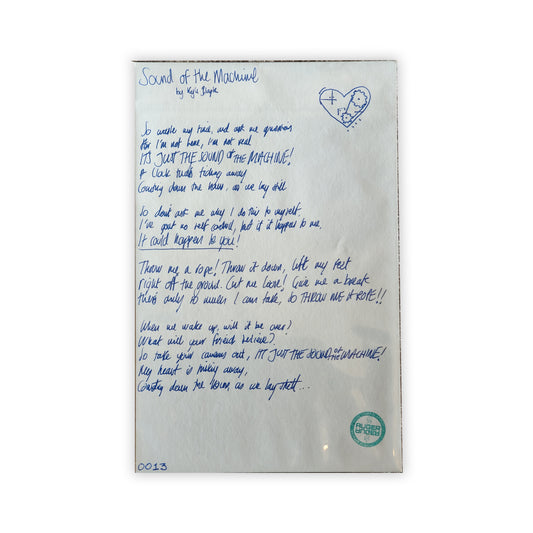 Sound of the Machine
by Kyle
So waste my time, and ask me questions
For I'm not here, I'm not real
IT'S JUST THE SOUND OF THE MACHINE!
A Clock that's ticking away
Counting down the hours, as we lay still
So don't ask me why I do this to myself.
I've got no self control, but if it happens to me,
It could happen to you!
Throw me a rope! Throw it down, lift my feet
right off the ground. Cut me loose! Give me a break
there's only so much I can take, So THROW ME A ROPE!!
When we wake up, will it be over?
What will your friends believe?
So take your cameras out, IT'S JUST THE SOUND OF THE MACHINE!
My heart is ticking away,
Counting down the hours, as we lay still...
AUGER
AUGER
0013